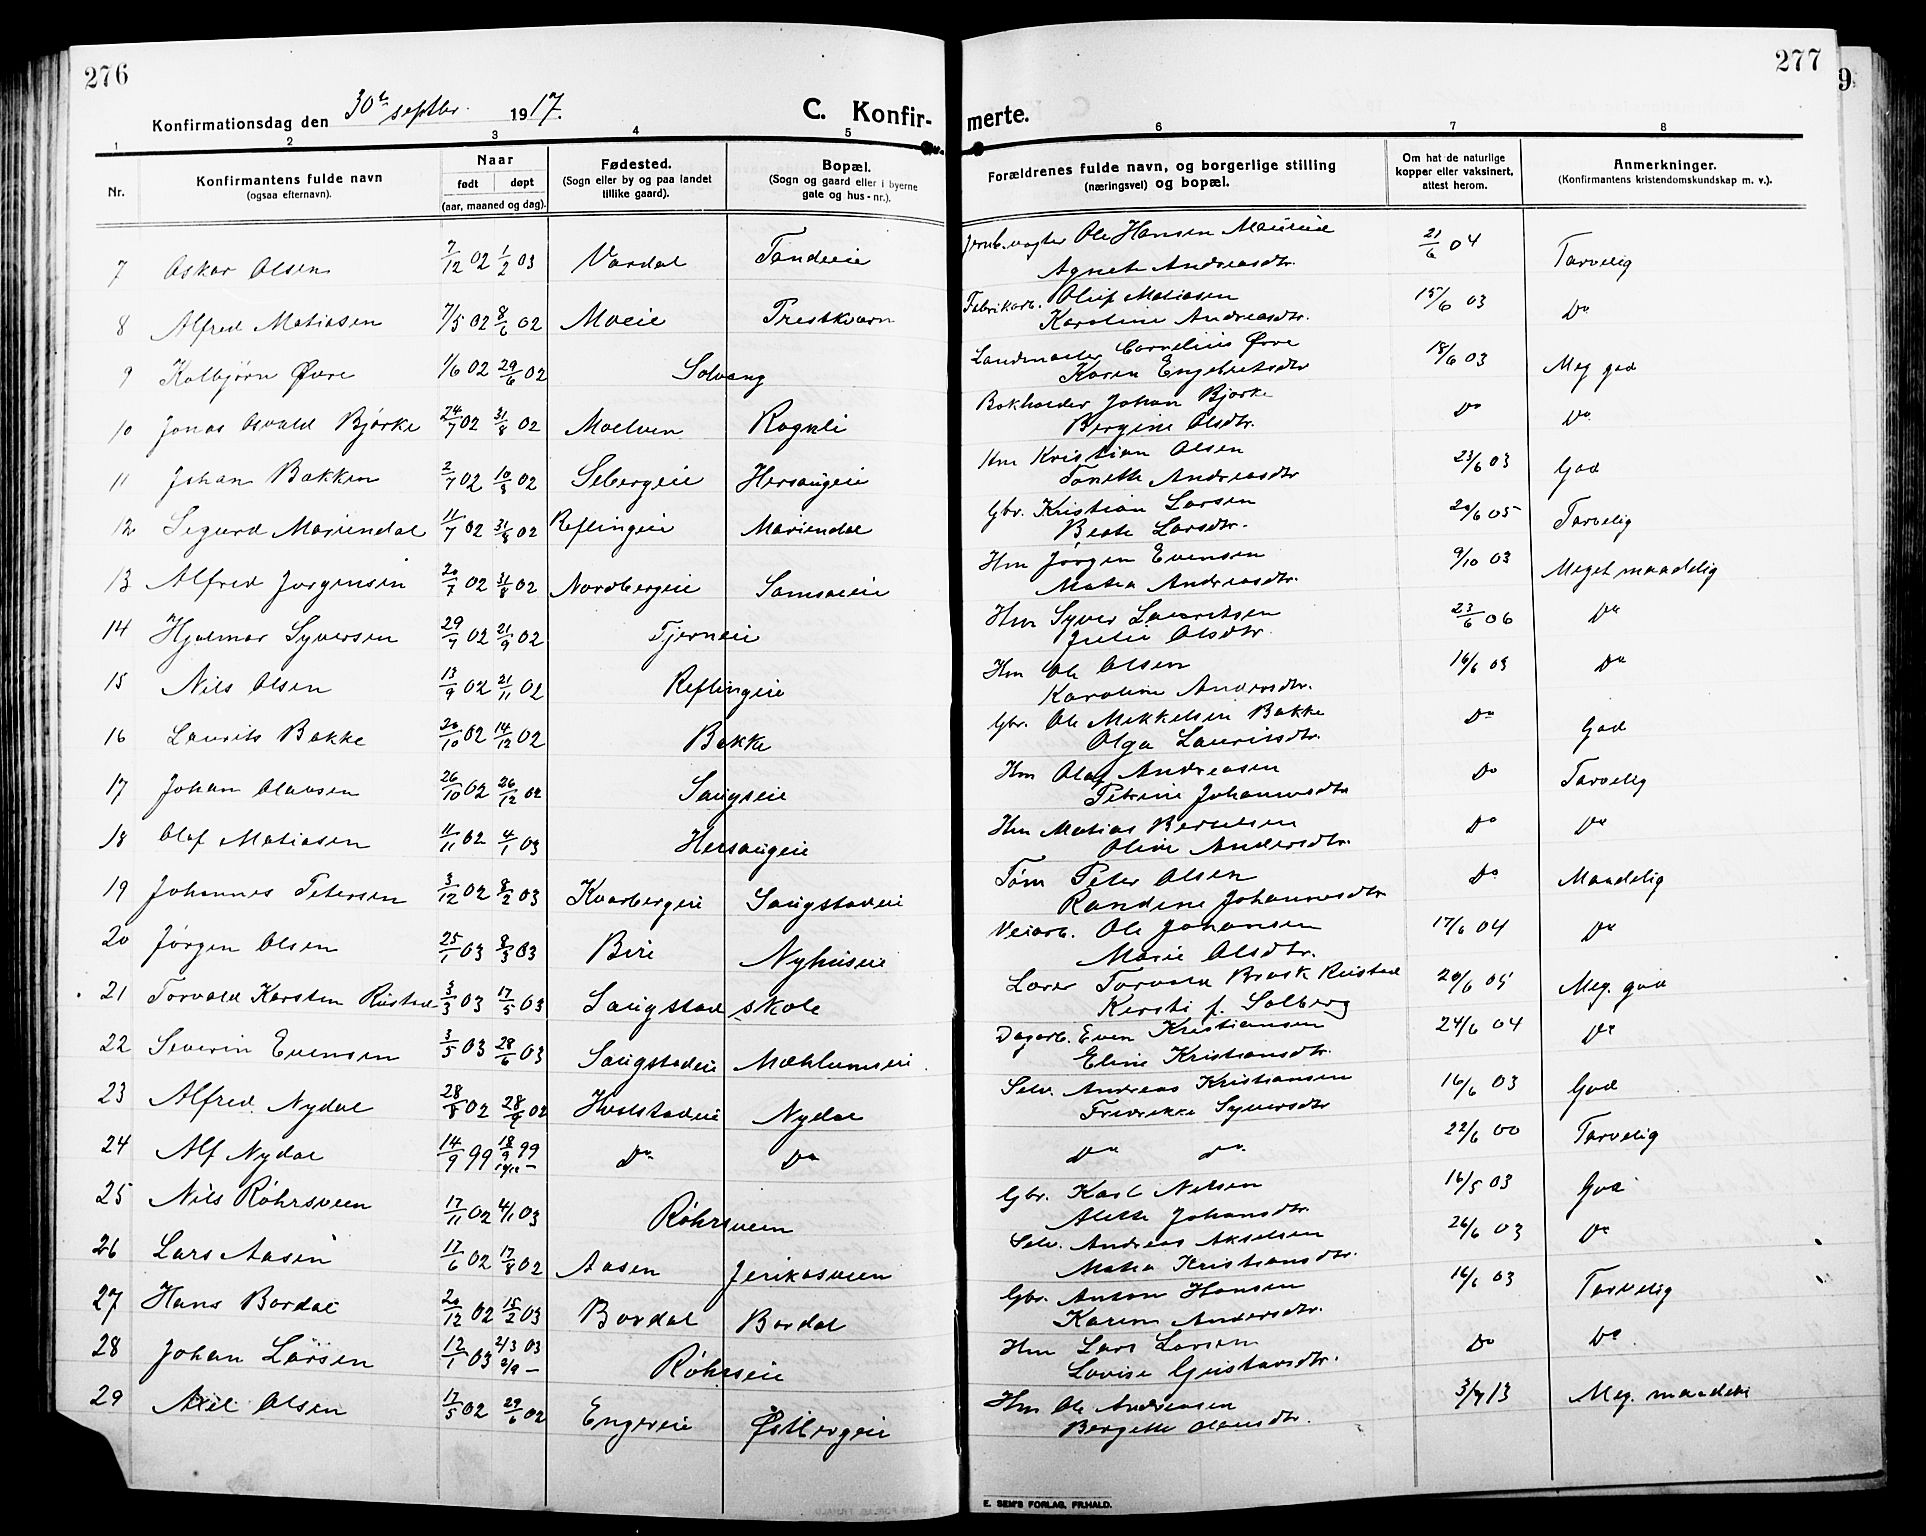 276
277
9
Konfirmationsdag den 30te septbr. 1917.
C. Konfirmerte.
1 2 3 4 5 6 7 8
Nr.
Konfirmantens fulde navn
(ogsaa efternavn).
Naar
født døpt
(aar, maaned og dag).
Fødested.
(Sogn eller by og paa landet
tillike gaard).
Bopæl.
(Sogn og gaard eller i byerne
gate og hus-nr.).
Forældrenes fulde navn, og borgerlige stilling
(næringsvei) og bopæl.
Om hat de naturlige
kopper eller vaksinert,
attest herom.
Anmerkninger.
(Konfirmantens kristendomskundskap m. v.).
7 Oskar Olsen 7/12 02 1/2 03 Vardal Jernb.vogter Ole Hansen 21/6 04 Tarvelig
Agnete Andreasdtr.
8 Alfred Matiasen 7/5 02 8/6 02 Moeie Prestkvern Fabrikarb. Oluf Matiasen 15/6 03 Do
Karoline Andreasdtr.
9 Kolbjørn Øvre 1/6 02 29/6 02 Solvang Landmaaler Cornelius Øvre 18/6 03 Meg god
Karen Engebretsdtr
10 Jonas Osvald Bjørke 24/7 02 31/8 02 Moelven Rognli Bokholder Johan Bjørke Do Do
Bergine Olsdtr.
11 Johan Bakken 2/7 02 10/8 02 Sebergeie Hersaugeie Hm Kristian Olsen 23/6 03 God
Tonette Andreasdtr
12 Sigurd Mariendal 11/7 02 31/8 02 Reflingeie Mariendal Gbr. Kristian Larsen 20/6 05 Tarvelig
Beate Larsdtr.
13 Alfred Jørgensen 20/7 02 31/8 02 Nordbergeie Samsaleie Hm Jørgen Evensen 9/10 03 Meget maadelig
Matea Andreasdtr.
14 Hjalmar Syversen 29/7 02 21/9 02 Tjerneie Hm Syver Lauritsen 23/6 06 Do
Julie Olsdtr.
15 Nils Olsen 13/9 02 21/11 02 Reflingeie Hm Ole Olsen 16/6 03 Do
Karoline Andersdtr.
16 Laurits Bakke 20/10 02 14/12 02 Bakke Gbr. Ole Mikkelsen Bakke Do God
Olga Lauritsdtr.
17 Johan Olavsen 26/10 02 26/12 02 Saugseie Hm Olaf Andreasen Do Tarvelig
Petrine Johannesdtr
18 Olaf Matiasen 11/11 02 4/1 03 Hersaugeie Hm Matias Bertelsen Do Do
Oline Andersdtr.
19 Johannes Petersen 3/12 02 8/2 03 Kvarbergeie Saugstadeie Tøm Peter Olsen Do Maadelig
Randine Johannesdtr
20 Jørgen Olsen 25/1 03 8/3 03 Biri Nyhuseie Veiarb. Ole Johansen 17/6 04 Do
Marie Olsdtr.
21 Torvald Karsten Rustad 3/3 03 17/5 03 Saugstad skole Lærer Torvald Brask Rustad 20/6 05 Meg. god
Kersti f. Solberg
22 Severin Evensen 3/5 03 28/6 03 Saugstadeie Mæhlumseie Dagarb. Even Kristiansen 24/6 04 Do
Eline Kristiansdtr.
23 Alfred Nydal 28/8 02 28/9 02 Holstadeie Nydal Selv. Andreas Kristiansen 16/6 03 God
Fredrikke Syversdtr
24 Alf Nydal 14/9 99 18/9 99 Do Do Do Do 22/6 00 Tarvelig
25 Nils Röhrsveen 17/11 02 4/1 03 Röhrsveen Gbr. Karl Nilsen 16/5 03 God
Alette Johansdtr.
26 Lars Aasen 17/6 02 17/8 02 Aasen Jerikosveen Selv. Andreas Akselsen 26/6 03 Do
Matea Kristiansdtr.
27 Hans Bordal 20/12 02 15/2 03 Bordal Bordal Gbr. Anton Hansen 16/6 03 Tarvelig
Karen Andersdtr.
28 Johan Larsen 12/1 03 2/3 03 Röhrseie Hm Lars Larsen Do Do
2/9 –
Lovise Gustavsdtr.
29 Axel Olsen 17/5 02 29/6 02 Engereie Østbergeie Hm Ole Andreasen 3/7 13 Meg. maadeli
Bergette Olausdtr.
E. SEM'S FORLAG, FR.HALD.